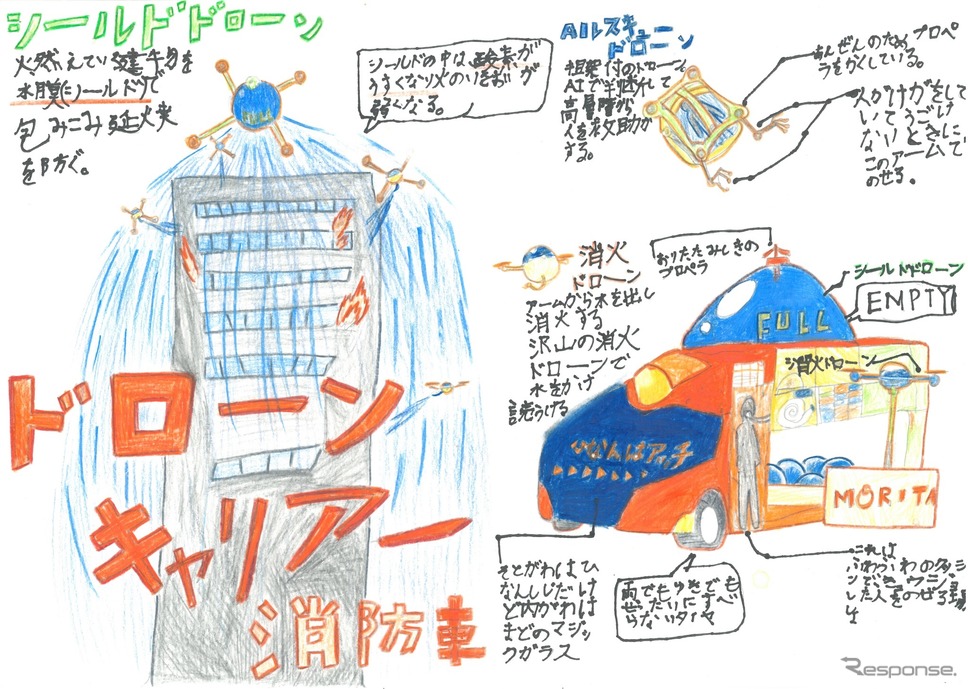 シールドドローン
火然えている建物を
水膜(シールド)で
包みこみ延火焼
を防ぐ。
シールドの中は酸素が
うすくなり火のいきおいが
弱くなる。
AIルスキュー
ドローン
AIで判断して
高層階から
人を救助が
する。
あんぜんのためプロペ
ラをかくしている。
人がけがをして
いてうごけ
ないときに
このアームで
のせる。
消火
ドローン
アームから水を出し
消火する
沢山の消火
ドローンで
水をかけ
続うける
おりたたみしきの
プロペラ
シールドドローン
EMPTY
FULL
FULL
消火ドローン
ひなんはアッチ
MORITA
ドローン
キャリアー
消防車
そとがわはひ
なんしじだけ
ど内がわは
まどのマジッ
クガラス
雨でもゆきでも
ぜったいにすべ
らないタイヤ
これは
ふわふわの
Response.